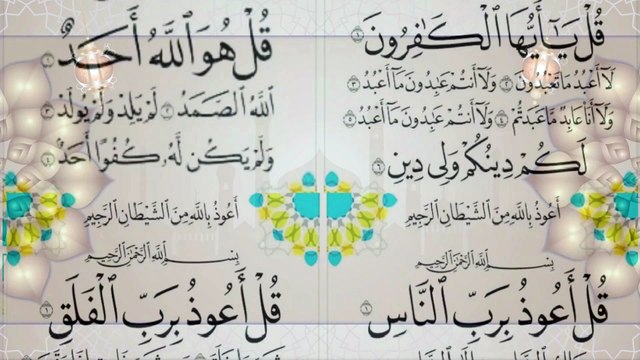 قُلْ يَٰٓأَيُّهَا ٱلْكَٰفِرُونَ ١
لَآ أَعْبُدُ مَا تَعْبُدُونَ ٢ وَلَآ أَنتُمْ عَٰبِدُونَ مَآ أَعْبُدُ ٣
وَلَآ أَنَا۠ عَابِدٌ مَّا عَبَدتُّمْ ٤ وَلَآ أَنتُمْ عَٰبِدُونَ مَآ أَعْبُدُ ٥
لَكُمْ دِينُكُمْ وَلِىَ دِينِ ٦
أَعُوذُ بِاللَّهِ مِنَ الشَّيْطَانِ الرَّجِيمِ
بِسْمِ ٱللَّهِ ٱلرَّحْمَٰنِ ٱلرَّحِيمِ
قُلْ أَعُوذُ بِرَبِّ ٱلنَّاسِ ١
قُلْ هُوَ ٱللَّهُ أَحَدٌ ١
ٱللَّهُ ٱلصَّمَدُ ٢ لَمْ يَلِدْ وَلَمْ يُولَدْ ٣
وَلَمْ يَكُن لَّهُۥ كُفُوًا أَحَدٌۢ ٤
أَعُوذُ بِاللَّهِ مِنَ الشَّيْطَانِ الرَّجِيمِ
بِسْمِ ٱللَّهِ ٱلرَّحْمَٰنِ ٱلرَّحِيمِ
قُلْ أَعُوذُ بِرَبِّ ٱلْفَلَقِ ١